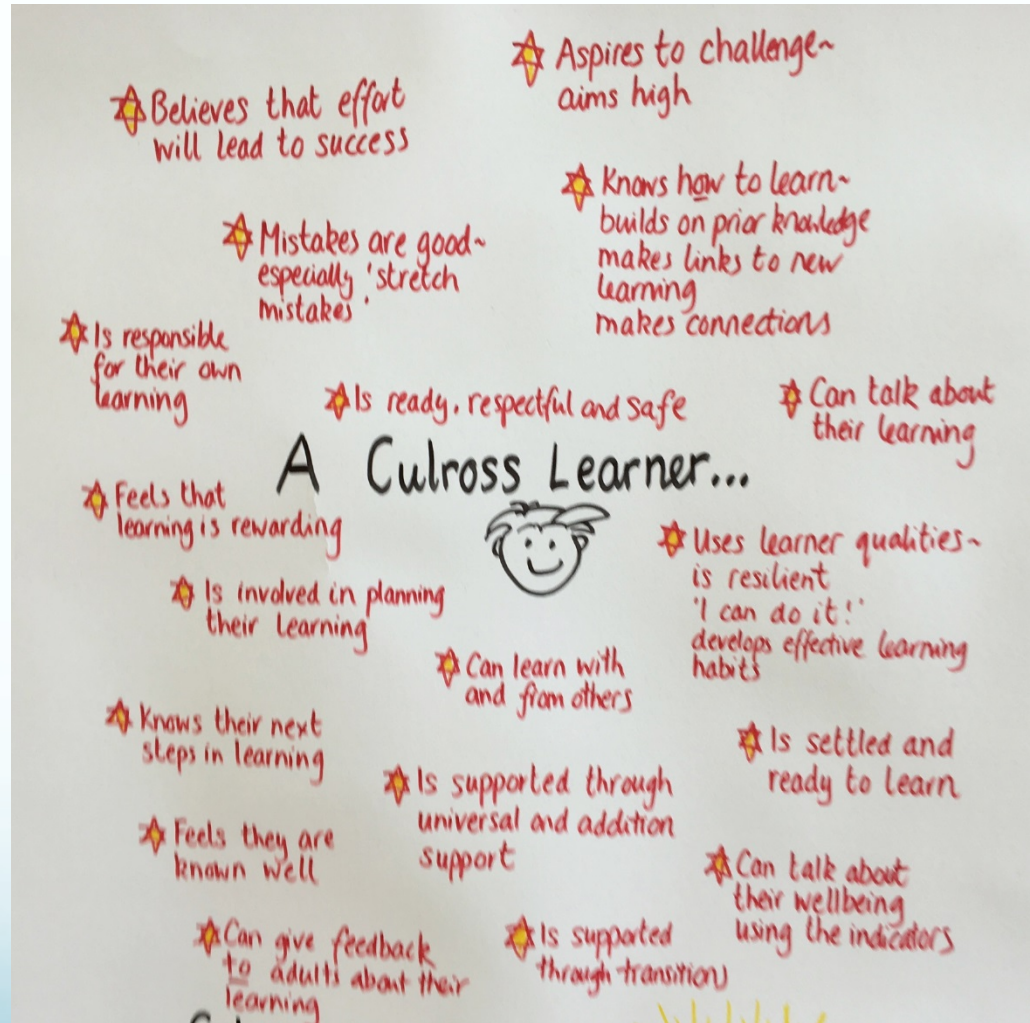 Aspires to challenge~
aims high
Believes that effort
will lead to success
Knows how to learn~
builds on prior knowledge
makes links to new
learning
makes connections
Mistakes are good~
especially 'stretch
mistakes'
Is responsible
for their own
learning
Is ready, respectful and safe
Can talk about
their learning
A Culross Learner...
Feels that
learning is rewarding
Uses learner qualities~
is resilient
'I can do it!'
develops effective learning
habits
Is involved in planning
their learning
Can learn with
and from others
Knows their next
steps in learning
Is settled and
ready to learn
Is supported through
universal and addition
support
Feels they are
known well
Can talk about
their wellbeing
using the indicators
Can give feedback
to adults about their
learning
Is supported
through transition